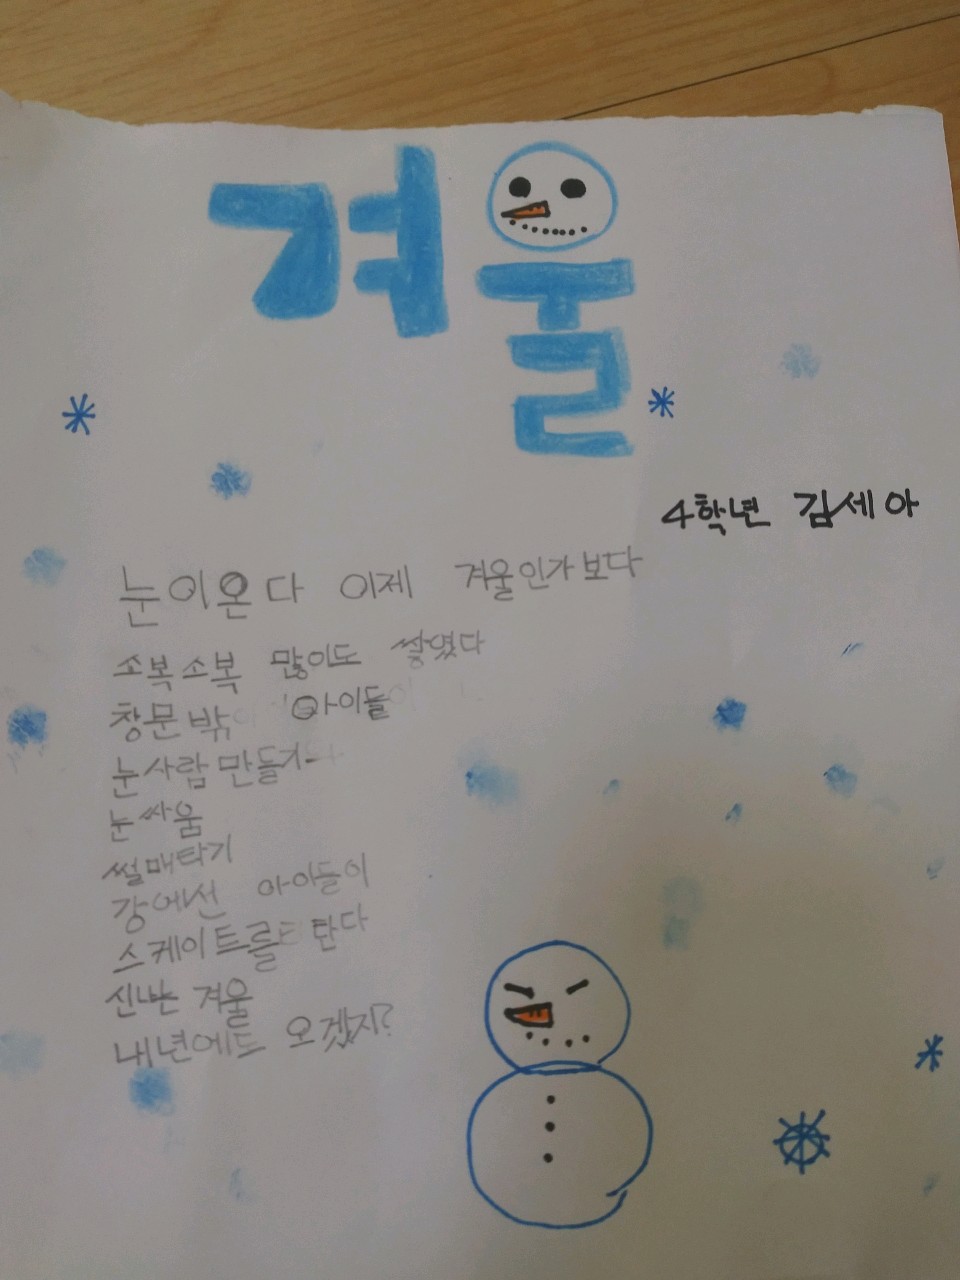 겨울
4학년 김세아
눈이온다 이제 겨울인가보다
소복소복 많이도 쌓였다
창문밖 아이들
눈사람만들기
눈싸움
썰매타기
강에선 아이들이
스케이트를 탄다
신나는 겨울
내년에도 오겠지?